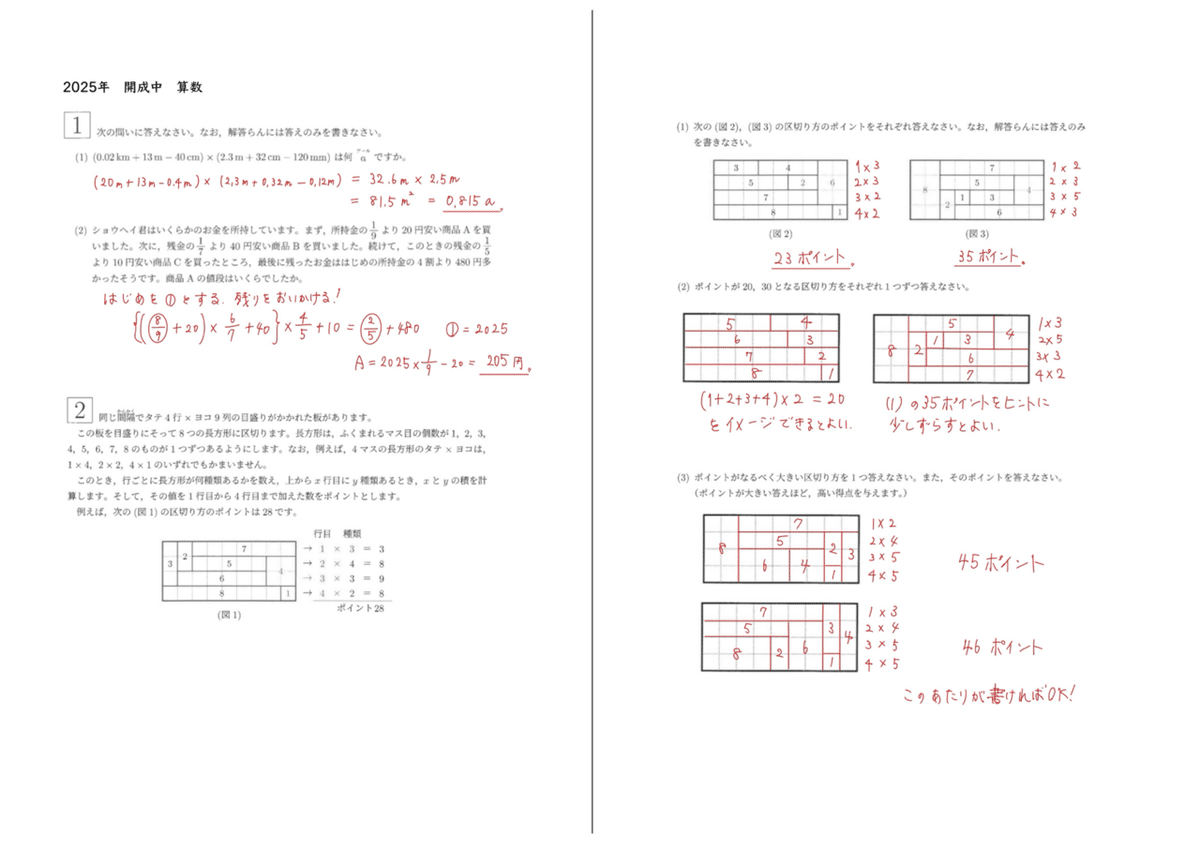 2025年 開成中 算数
1 次の問いに答えなさい。なお，解答らんには答えのみを書きなさい。
(1) (0.02 km + 13 m − 40 cm) × (2.3 m + 32 cm − 120 mm) は何 a ですか。
アール
(20m + 13m − 0.4m) × (2.3m + 0.32m − 0.12m) = 32.6m × 2.5m
= 81.5 m² = 0.815 a。
(2) ショウヘイ君はいくらかのお金を所持しています。まず，所持金の 1/9 より 20 円安い商品 A を買
いました。次に，残金の 1/7 より 40 円安い商品 B を買いました。続けて，このときの残金の 1/5
より 10 円安い商品 C を買ったところ，最後に残ったお金ははじめの所持金の 4 割より 480 円多
かったそうです。商品 A の値段はいくらでしたか。
はじめを ① とする. 残りをおいかける!
{((8/9) + 20) × 6/7 + 40} × 4/5 + 10 = (2/5) + 480 ① = 2025
A = 2025 × 1/9 − 20 = 205 円。
2 同じ間隔でタテ 4 行 × ヨコ 9 列の目盛りがかかれた板があります。
かんかく
この板を目盛りにそって 8 つの長方形に区切ります。長方形は，ふくまれるマス目の個数が 1, 2, 3,
4, 5, 6, 7, 8 のものが 1 つずつあるようにします。なお，例えば，4 マスの長方形のタテ × ヨコは，
1 × 4, 2 × 2, 4 × 1 のいずれでもかまいません。
このとき，行ごとに長方形が何種類あるかを数え，上から x 行目に y 種類あるとき，x と y の積を計
算します。そして，その値を 1 行目から 4 行目まで加えた数をポイントとします。
例えば，次の (図 1) の区切り方のポイントは 28 です。
行目 種類
3 2 7 → 1 × 3 = 3
5 4 → 2 × 4 = 8
6 → 3 × 3 = 9
8 1 → 4 × 2 = 8
ポイント 28
(図 1)
(1) 次の (図 2)，(図 3) の区切り方のポイントをそれぞれ答えなさい。なお，解答らんには答えのみ
を書きなさい。
3 4 1 × 3
5 2 6 2 × 3
7 3 × 2
8 1 4 × 2
(図 2)
23 ポイント。
7 1 × 2
8 5 4 2 × 3
2 1 3 3 × 5
6 4 × 3
(図 3)
35 ポイント。
(2) ポイントが 20，30 となる区切り方をそれぞれ 1 つずつ答えなさい。
5 4
6 3
7 2
8 1
(1+2+3+4) × 2 = 20
をイメージできるとよい.
5 4 1×3
8 2 1 3 2×5
6 3×3
7 4×2
(1) の 35 ポイントをヒントに
少しずらすとよい.
(3) ポイントがなるべく大きい区切り方を 1 つ答えなさい。また，そのポイントを答えなさい。
(ポイントが大きい答えほど，高い得点を与えます。)
7 1×2
8 5 2 3 2×4
6 4 3×5
1 4×5
45 ポイント
7 1×3
5 3 4 2×4
8 2 6 3×5
1 4×5
46 ポイント
このあたりが書ければOK!